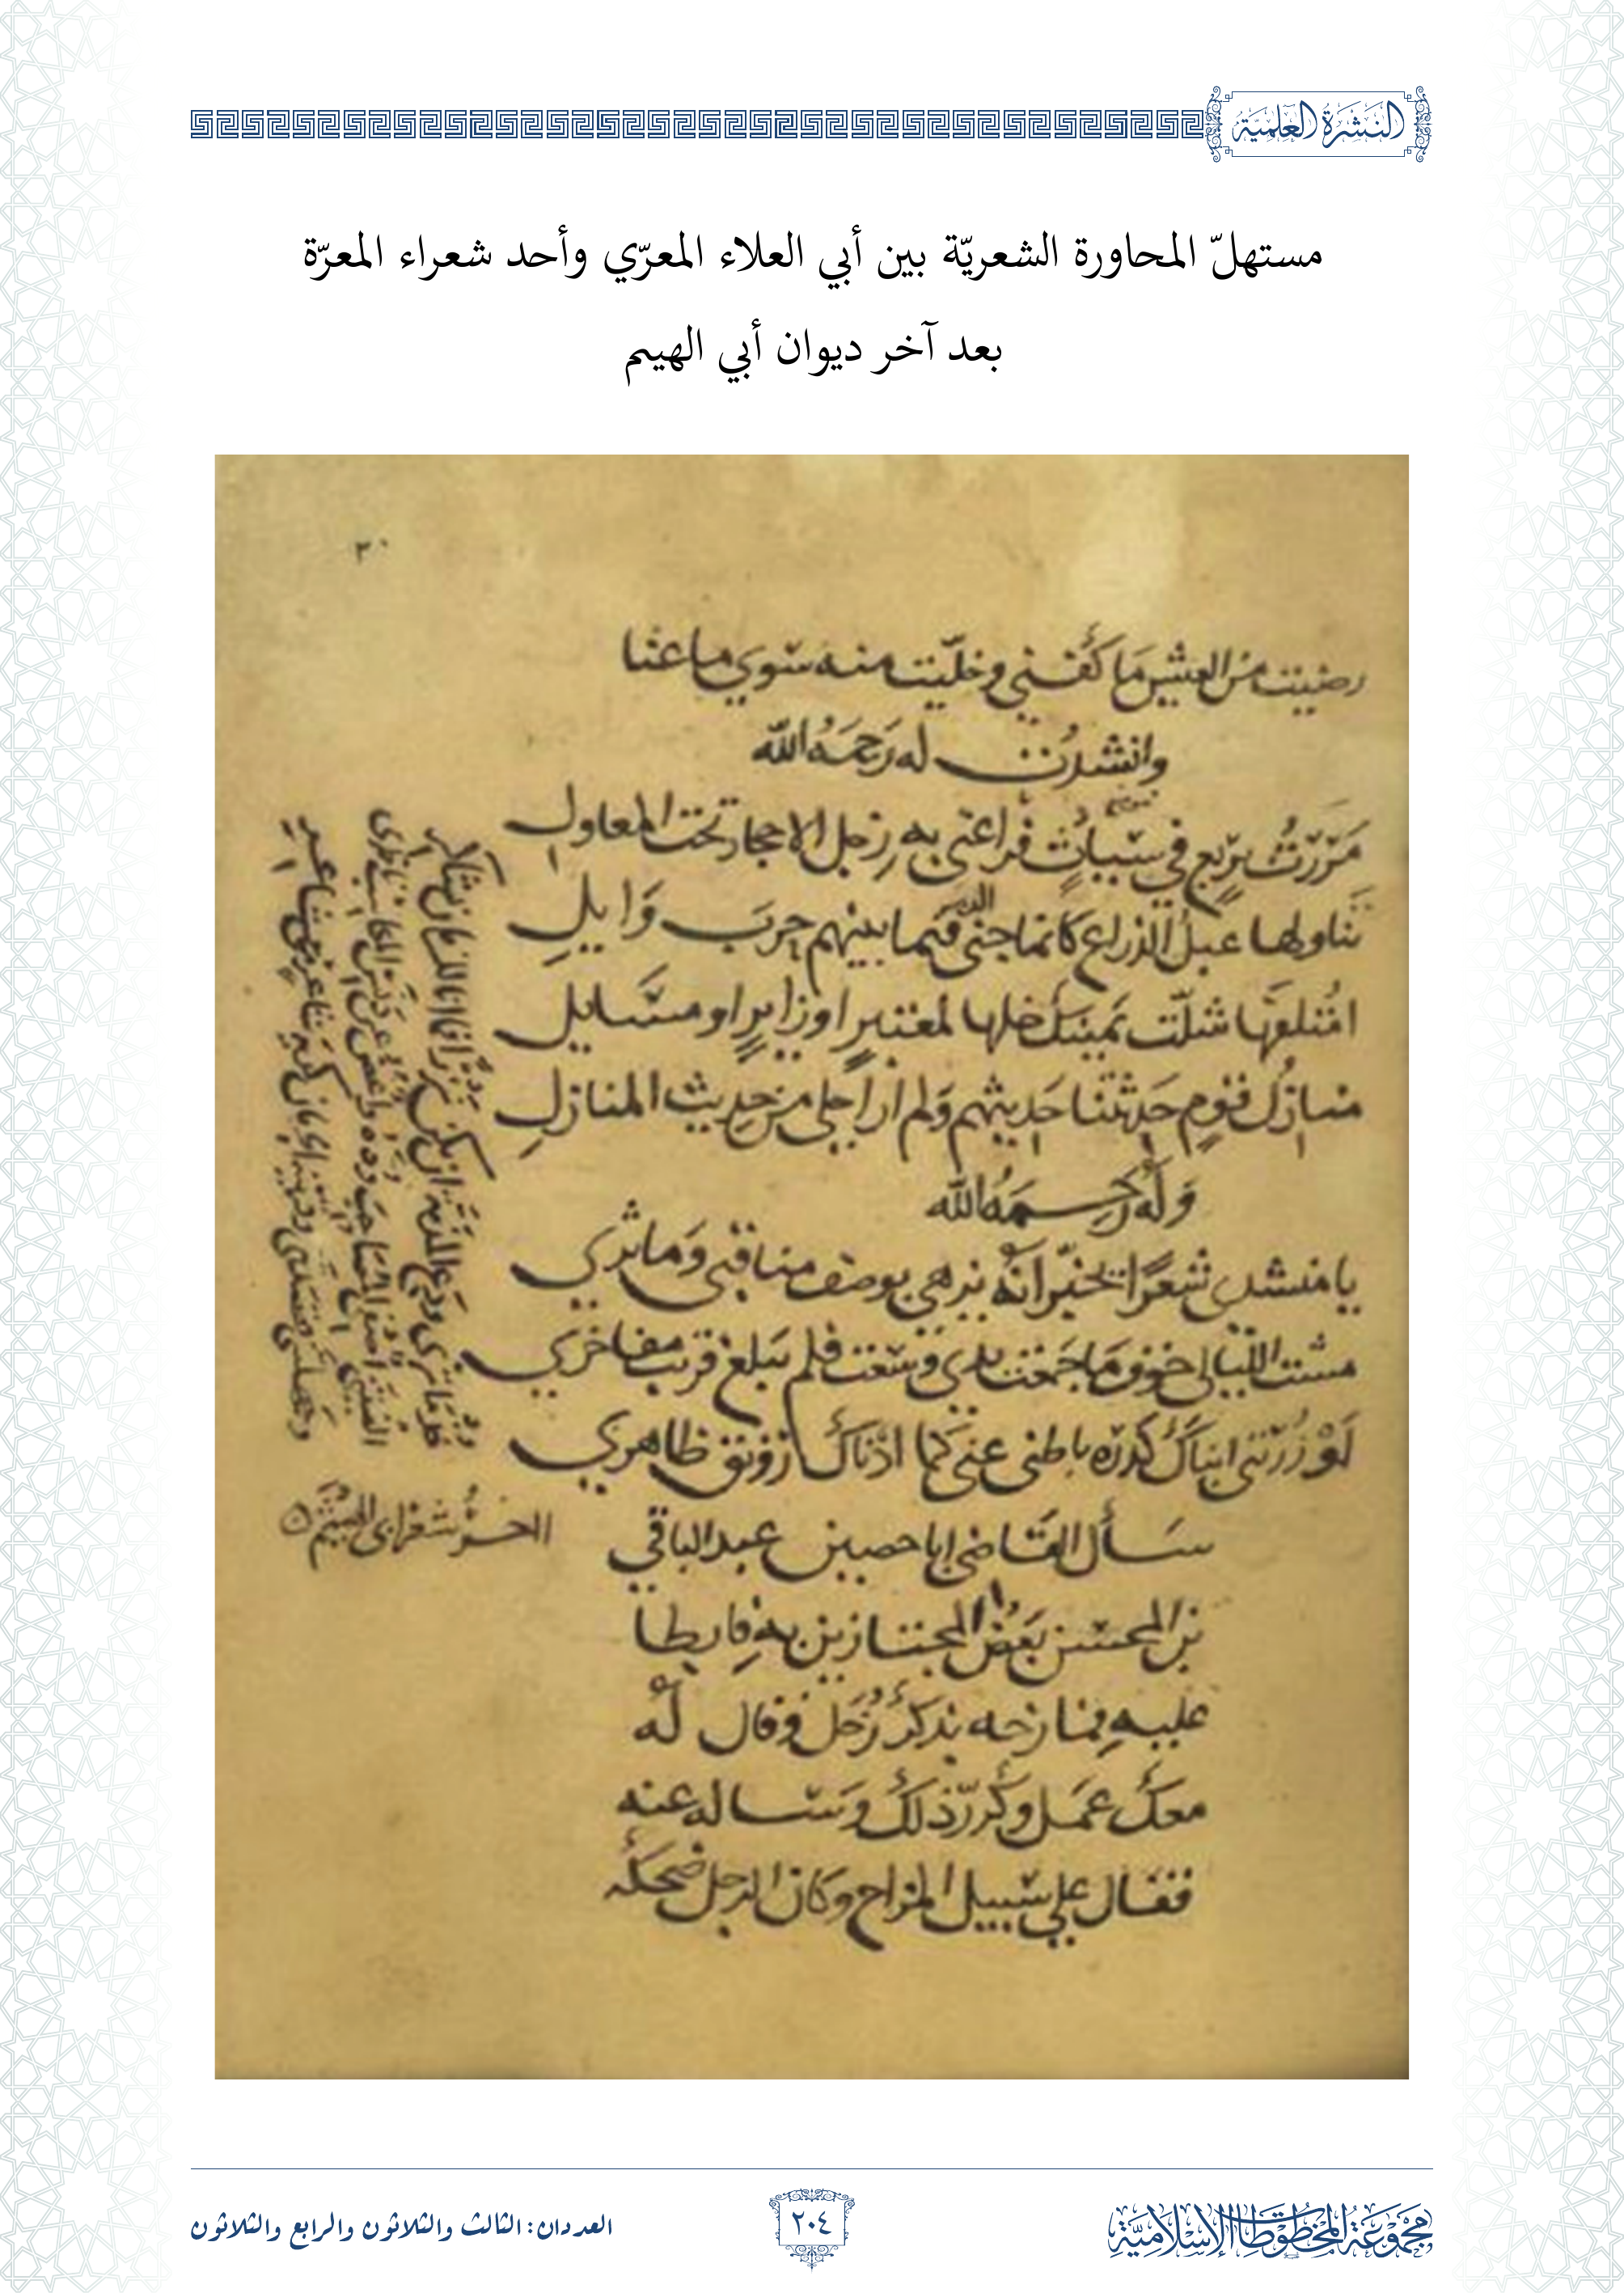 النشرة العلمية
مستهلّ المحاورة الشعريّة بين أبي العلاء المعرّي وأحد شعراء المعرّة
بعد آخر ديوان أبي الهيثم
٣٠
رضيت من العيش ما كفني وخليت منه سوي ما عنا
وانشدت له رَحِمَهُ الله
مَرَرْتُ بِرَبع في سياث فراعني به زجل الاحجار تحت المعاول
تناولها عبل الذراع كانما جنى الدهر فيما بينهم حرب وايل
امتلفها شلّت يمينك خلها لمعتبر او زاير او مسايل
منازل قوم حدثتنا حديثهم ولم ار احلى من حديث المنازل
وَلَهُ رحمَهُ الله
يا منشدي شعرًا تخيّر انه يزهى بوصف مناقبي وماثري
مشت الليالي خوف ما جمعت يدي وسعت فلم تبلغ قريب مفاخري
لَوْ زُرْتني انباك كدره باطني عني كما اذناك رونق ظاهري
سأل القاضي ابا حصين عبد الباقي
بن المحسن بعض المجتازين به فابطا
عليه فمازحه بذكر زحل وقال له
معك عمل وكرر ذلك وساله عنه
فقال علي سبيل المزاح وكان الرجل ضحكه
اخر شعر ابى الهيثم
مجموعة المخطوطات الإسلامية
٢٠٤
العددان: الثالث والثلاثون والرابع والثلاثون